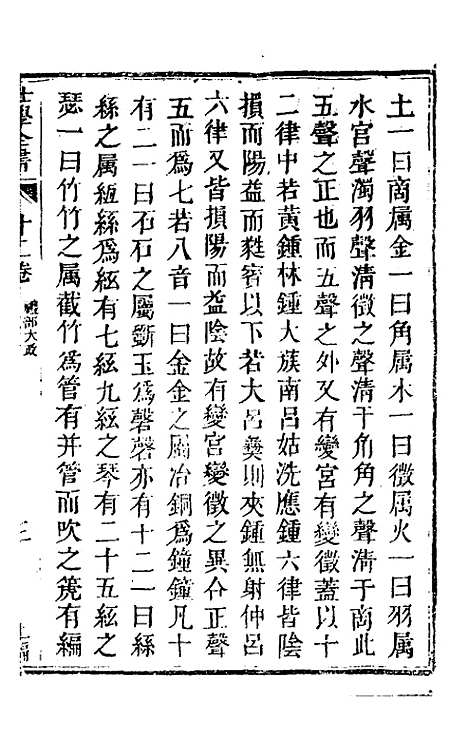 土一曰商属金一曰角属木一曰徵属火一曰羽属
水宫聲濁羽聲清徵之聲清于角角之聲清于商此
五聲之正也而五聲之外又有變宫有變徵蓋以十
二律中若黄鍾林鍾大蔟南呂姑洗應鍾六律皆陰
損而陽益而蕤賓以下若大呂夷則夾鍾無射仲呂
六律又皆損陽而益陰故有變宫變徵之異合正聲
五而爲七若八音一曰金金之属冶銅爲鐘鐘凡十
有二一曰石石之屬斵玉爲磬磬亦有十二一曰絲
絲之属緪絲爲絃有七絃九絃之琴有二十五絃之
瑟一曰竹竹之属截竹爲管有并管而吹之箎有編
仕學全書
十二卷
禮部大政
二
上編